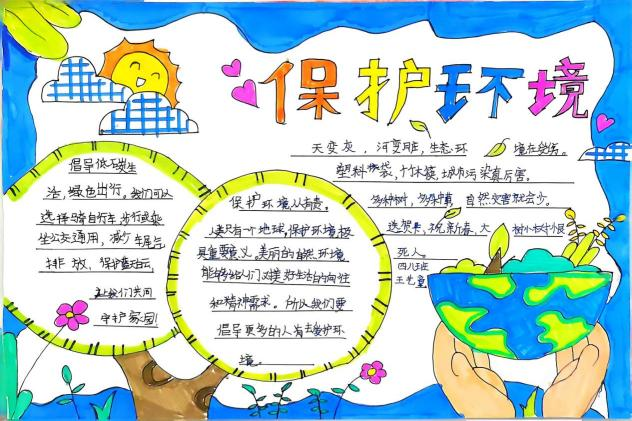 保护环境
天变灰，河变脏，生态环境在受伤。
塑料袋，个个袋，城市污染真厉害。
多种树，多种草，自然灾害就会少。
送贺卡，祝新春，大树小树
死人。
四八班
倡导低碳生
活，绿色出行。我们可以
选择骑自行车步行或乘
坐公交通用，减少车尾气
排放，保护蓝天白云，
让我们共同
守护家园！
保护环境人人有责。
人类只有一个地球，保护环境极
具重要意义，美丽的自然环境
能够给人们对美好生活的向往
和精神需求。所以我们要
倡导更多的人去爱护环
境。